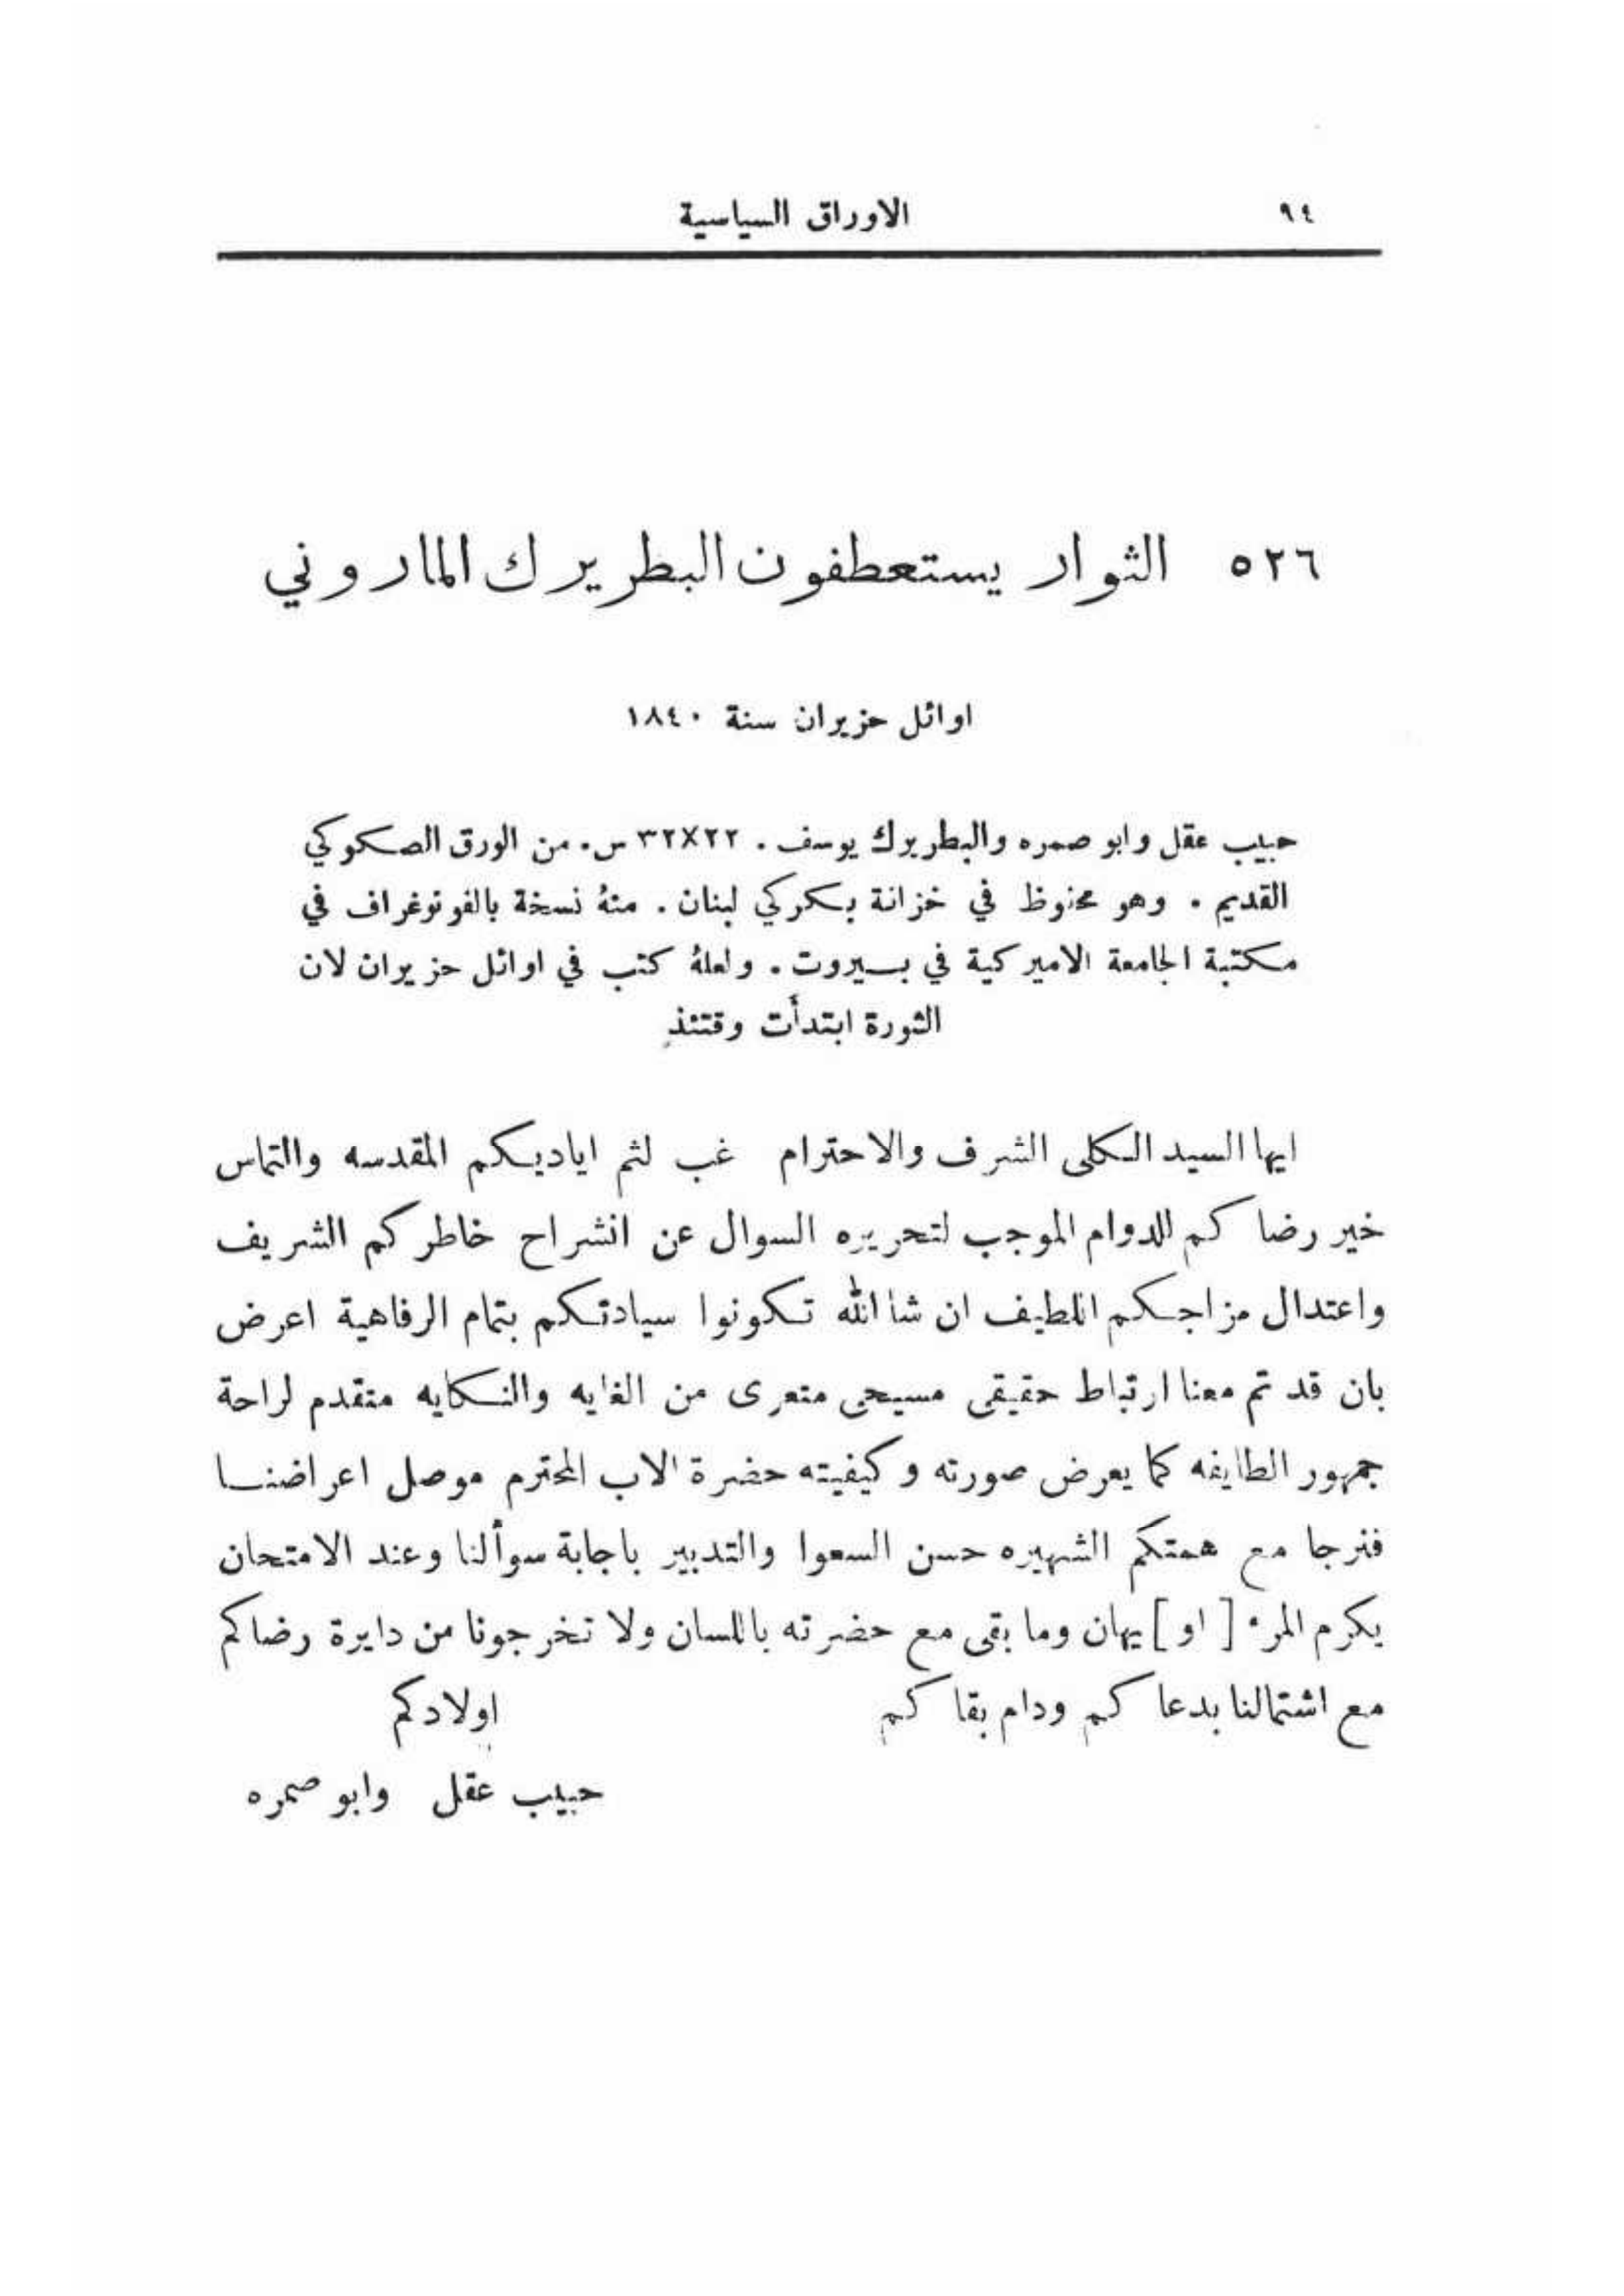 ٩٤ الاوراق السياسية
٥٢٦ الثوار يستعطفون البطريرك الماروني
اوائل حزيران سنة ١٨٤٠
حبيب عقل وابو صمره والبطريرك يوسف . ٢٢×٣٢ س. من الورق الصكوكي
القديم . وهو محفوظ في خزانة بكركي لبنان . منهُ نسخة بالفوتوغراف في
مكتبة الجامعة الاميركية في بيروت . ولعلهُ كتب في اوائل حزيران لان
الثورة ابتدأت وقتئذٍ
ايها السيد الكلى الشرف والاحترام غب لثم اياديكم المقدسه والتماس
خير رضاكم للدوام الموجب لتحريره السوال عن انشراح خاطركم الشريف
واعتدال مزاجكم اللطيف ان شا الله تكونوا سيادتكم بتمام الرفاهية اعرض
بان قد تم معنا ارتباط حقيقى مسيحى متعرى من الغايه والنكايه متقدم لراحة
جمهور الطايفه كما يعرض صورته وكيفيته حضرة الاب المحترم موصل اعراضنا
فنرجا مع همتكم الشهيره حسن السعوا والتدبير باجابة سوألنا وعند الامتحان
يكرم المرء [ او ] يهان وما بقى مع حضرته باللسان ولا تخرجونا من دايرة رضاكم
مع اشتمالنا بدعاكم ودام بقاكم اولادكم
حبيب عقل وابو صمره